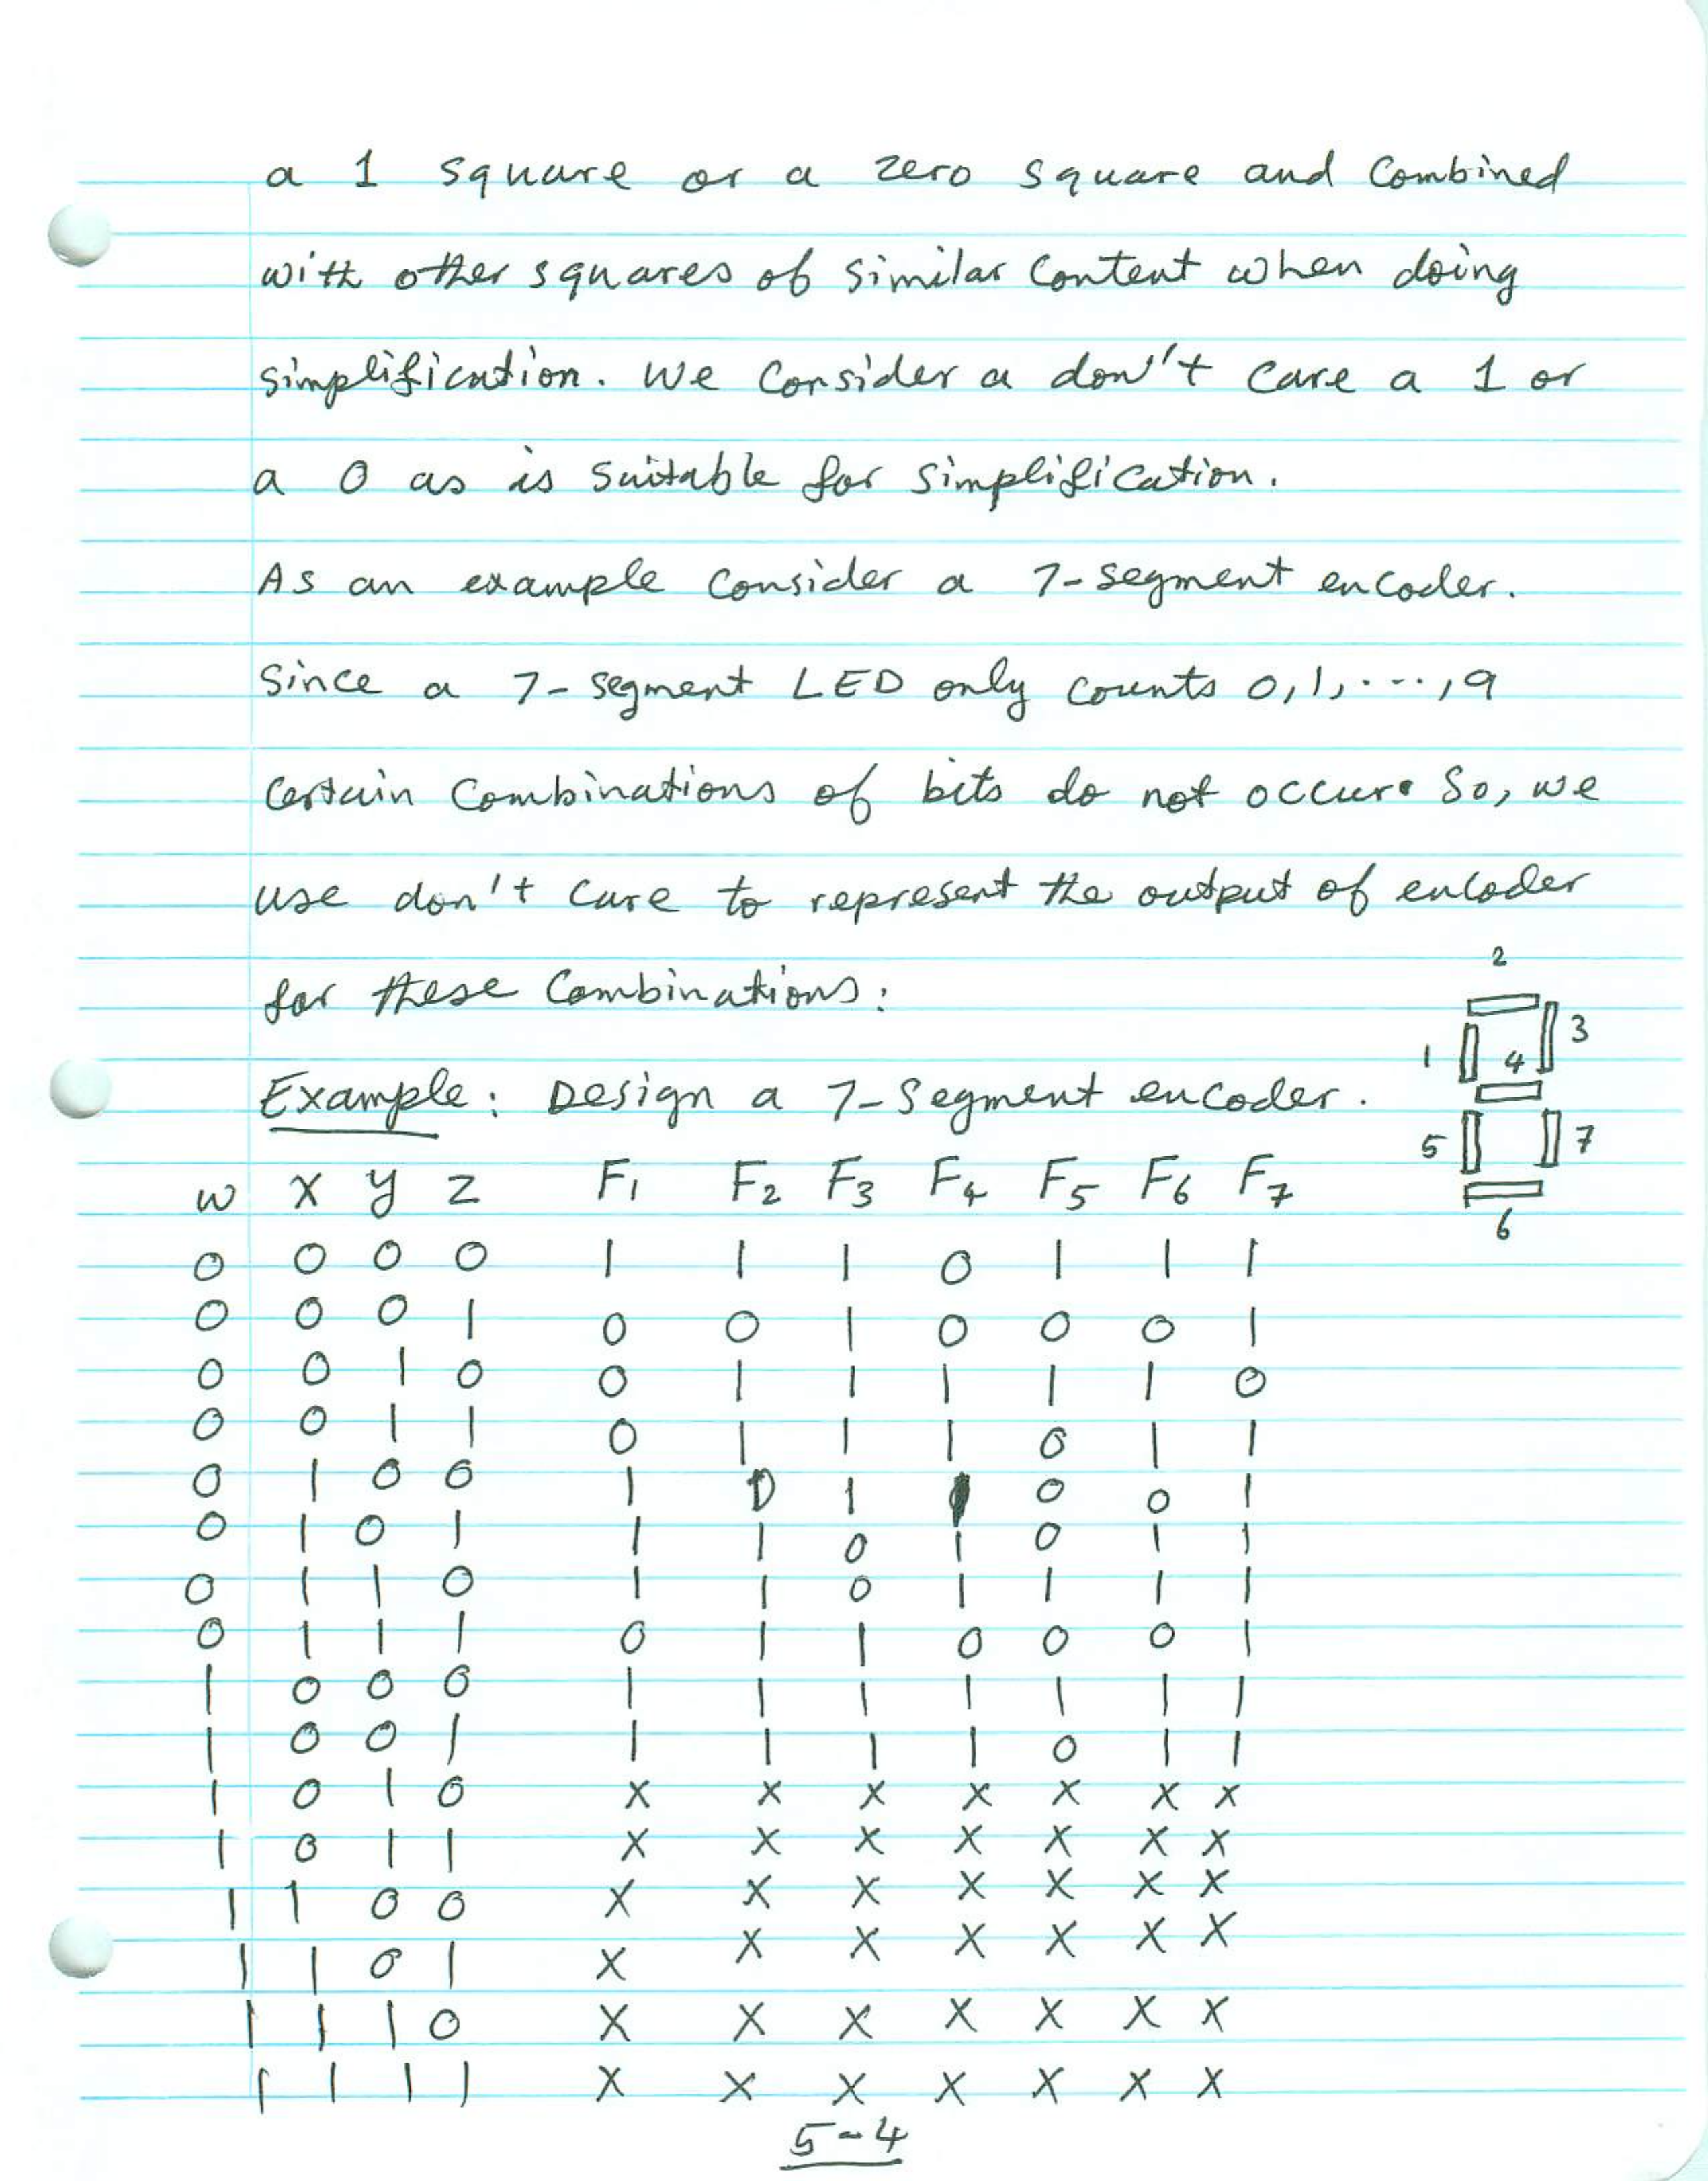 a 1 square or a zero square and combined
with other squares of similar content when doing
simplification. We consider a don't care a 1 or
a 0 as is suitable for simplification.
As an example consider a 7-segment encoder.
Since a 7-segment LED only counts 0,1,...,9
certain combinations of bits do not occur. So, we
use don't care to represent the output of encoder
for these combinations:
2
3
1
4
Example: Design a 7-Segment encoder.
5
7
6
w x y z F1 F2 F3 F4 F5 F6 F7
0 0 0 0 1 1 1 0 1 1 1
0 0 0 1 0 0 1 0 0 0 1
0 0 1 0 0 1 1 1 1 1 0
0 0 1 1 0 1 1 1 0 1 1
0 1 0 0 1 0 1 1 0 0 1
0 1 0 1 1 1 0 1 0 1 1
0 1 1 0 1 1 0 1 1 1 1
0 1 1 1 0 1 1 0 0 0 1
1 0 0 0 1 1 1 1 1 1 1
1 0 0 1 1 1 1 1 0 1 1
1 0 1 0 x x x x x x x
1 0 1 1 x x x x x x x
1 1 0 0 x x x x x x x
1 1 0 1 x x x x x x x
1 1 1 0 x x x x x x x
1 1 1 1 x x x x x x x
5-4